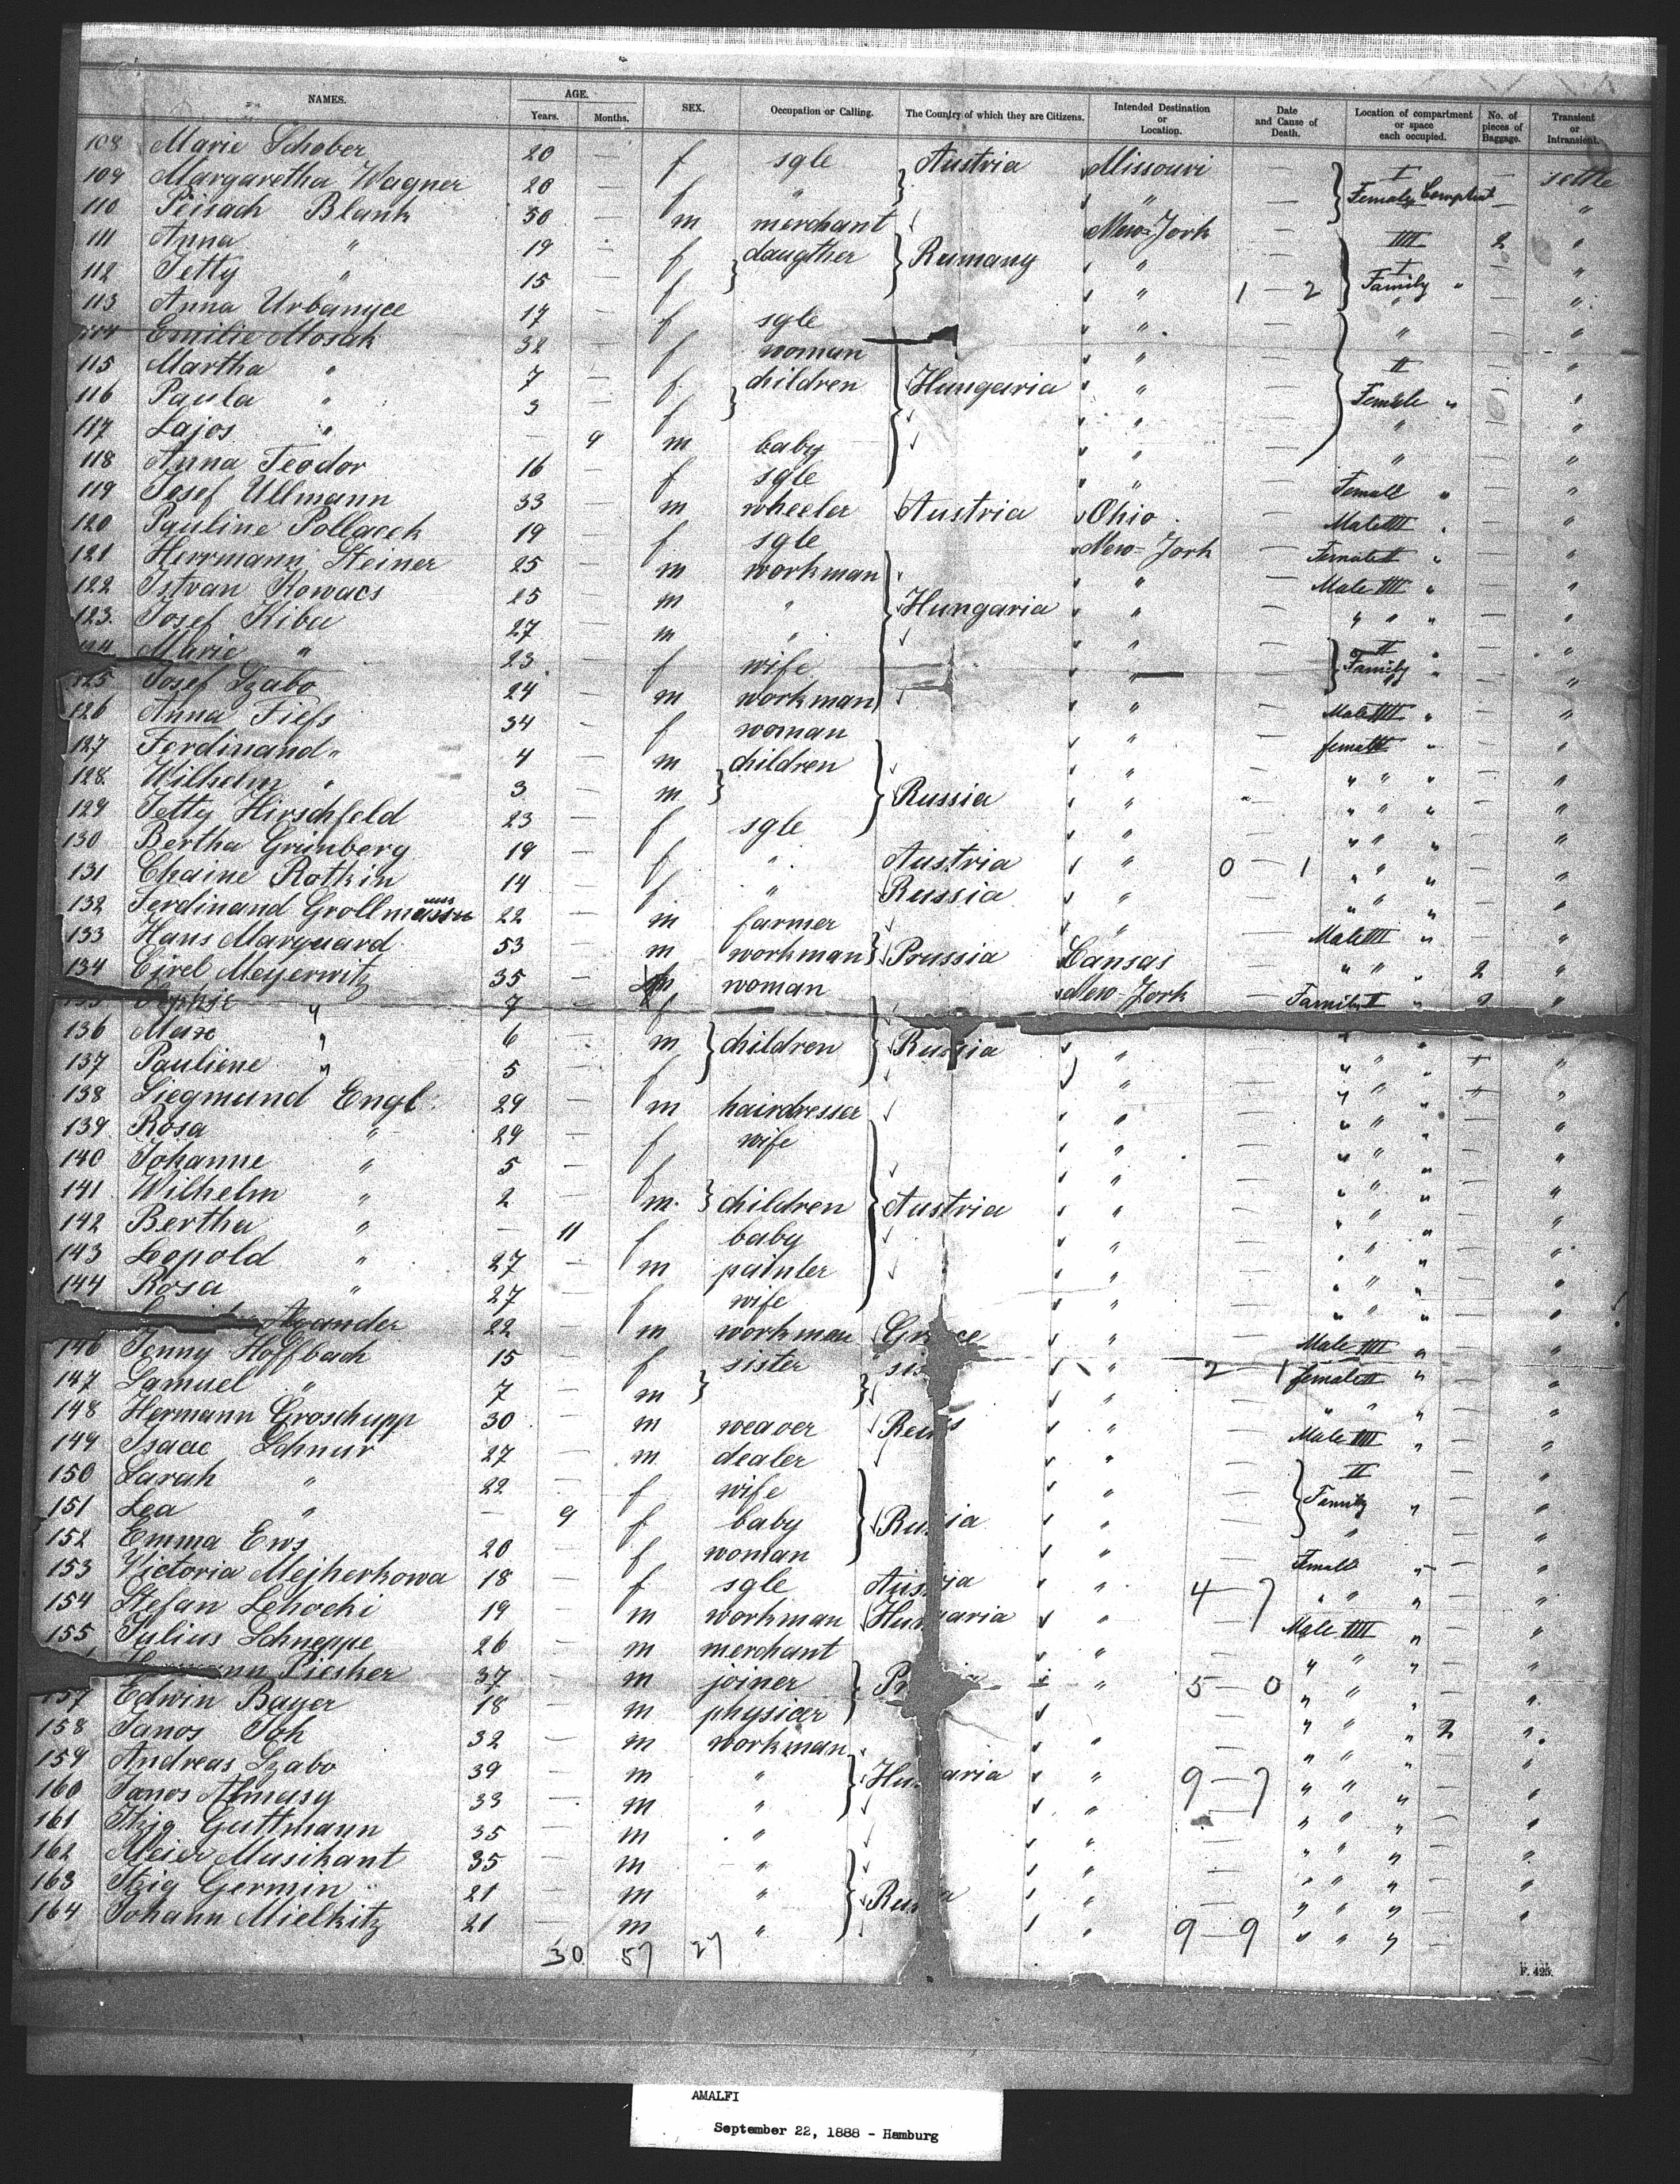 NAMES. AGE. Years. Months. SEX. Occupation or Calling. The Country of which they are Citizens. Intended Destination or Location. Date and Cause of Death. Location of compartment or space each occupied. No. of pieces of Baggage. Transient or Intransient.
108 Marie Schober 20 — f sgle Austria Missouri — I — settle
109 Margaretha Wagner 20 — f " " — Female Compless — "
110 Peisach Blank 50 — m merchant New-York — IIII 2 "
111 Anna " 19 — f daugther Rumany " — I — "
112 Jetty " 15 — f " 1 — 2 Family " — "
113 Anna Urbanyce 17 — f sgle " — " — "
114 Emilie Mosak 32 — f woman " — II — "
115 Martha " 7 — f children Hungaria " — Female " — "
116 Paula " 3 — f " — " — "
117 Lajos " — 9 m baby " — " — "
118 Anna Teodor 16 — f sgle " — Femall " — "
119 Josef Ullmann 33 — m wheeler Austria Ohio — Male IIII " — "
120 Pauline Pollacek 19 — f sgle New-York — Female II " — "
121 Herrmann Steiner 25 — m workman " — Male IIII " — "
122 Istvan Kowacs 25 — m " Hungaria " — " " " — "
123. Josef Kiba 27 — m " " — II " — "
Marie " 23 — f wife " — Family " — "
125 Josef Szabo 24 — m workman " — Male IIII " — "
126 Anna Fiess 34 — f woman " — female II " — "
127 Ferdinand " 4 — m children " — " " " — "
128 Wilhelm " 3 — m Russia " — " " " — "
129 Jetty Hirschfeld 23 — f sgle " — " " " — "
130 Bertha Grünberg 19 — f " Austria " 0 — 1 " " " — "
131 Chaine Rotkin 14 — f " Russia " — " " " — "
132 Ferdinand Grollmuss 22 — m farmer " — Male IIII " — "
133 Hans Marquard 53 — m workman Prussia Cansas — " " " 2 "
134 Cirel Meyerwitz 35 — f woman New-York — Family II " 2 "
" 7 — f
136 Max " 6 — m children Russia " — " " " — "
137 Pauliene " 5 — f " — " " " — "
138 Siegmund Engl 29 — m hairdresser " — " " " — "
139 Rosa " 29 — f wife " — " " " — "
140 Johanne " 5 — f " — " " " — "
141 Wilhelm " 2 — m. children Austria " — " " " — "
142 Bertha " — 11 f baby " — " " " — "
143 Leopold " 27 — m painter " — " " " — "
144 Rosa " 27 — f wife " — " " " — "
22 — m workman " — Male IIII " — "
146 Jenny Hoffbach 15 — f sister " 2 — 1 female II " — "
147 Samuel " 7 — m " — " " " — "
148 Hermann Groschupp 30 — m weaver " — Male IIII " — "
149 Isaac Schnur 27 — m dealer " — II — "
150 Sarah " 22 — f wife " — Family " — "
151 Lea " — 9 f baby Russia " — " — "
152 Emma Ews 20 — f woman " — Femall " — "
153 Victoria Mejherkowa 18 — f sgle Austria " 4 — 7 " " " — "
154 Stefan Lehocki 19 — m workman Hungaria " — Male IIII " — "
155 Julius Schneppe 26 — m merchant " — " " " — "
Piesker 37 — m joiner " 5 — 0 " " " — "
157 Edwin Bayer 18 — m physicer " — " " " 2 "
158 Janos Toh 32 — m workman " — " " " — "
159 Andreas Szabo 39 — m " Hungaria " 9 — 7 " " " — "
160 Janos Almasy 33 — m " " — " " " — "
161 Itzig Guttmann 35 — m " " — " " " — "
162 Meier Musikant 35 — m " " — " " " — "
163 Itzig Germin 21 — m " Russia " — " " " — "
164 Johann Mielkitz 21 — m " " 9 — 9 " " " — "
30 57 27
F. 425.
AMALFI
September 22, 1888 - Hamburg